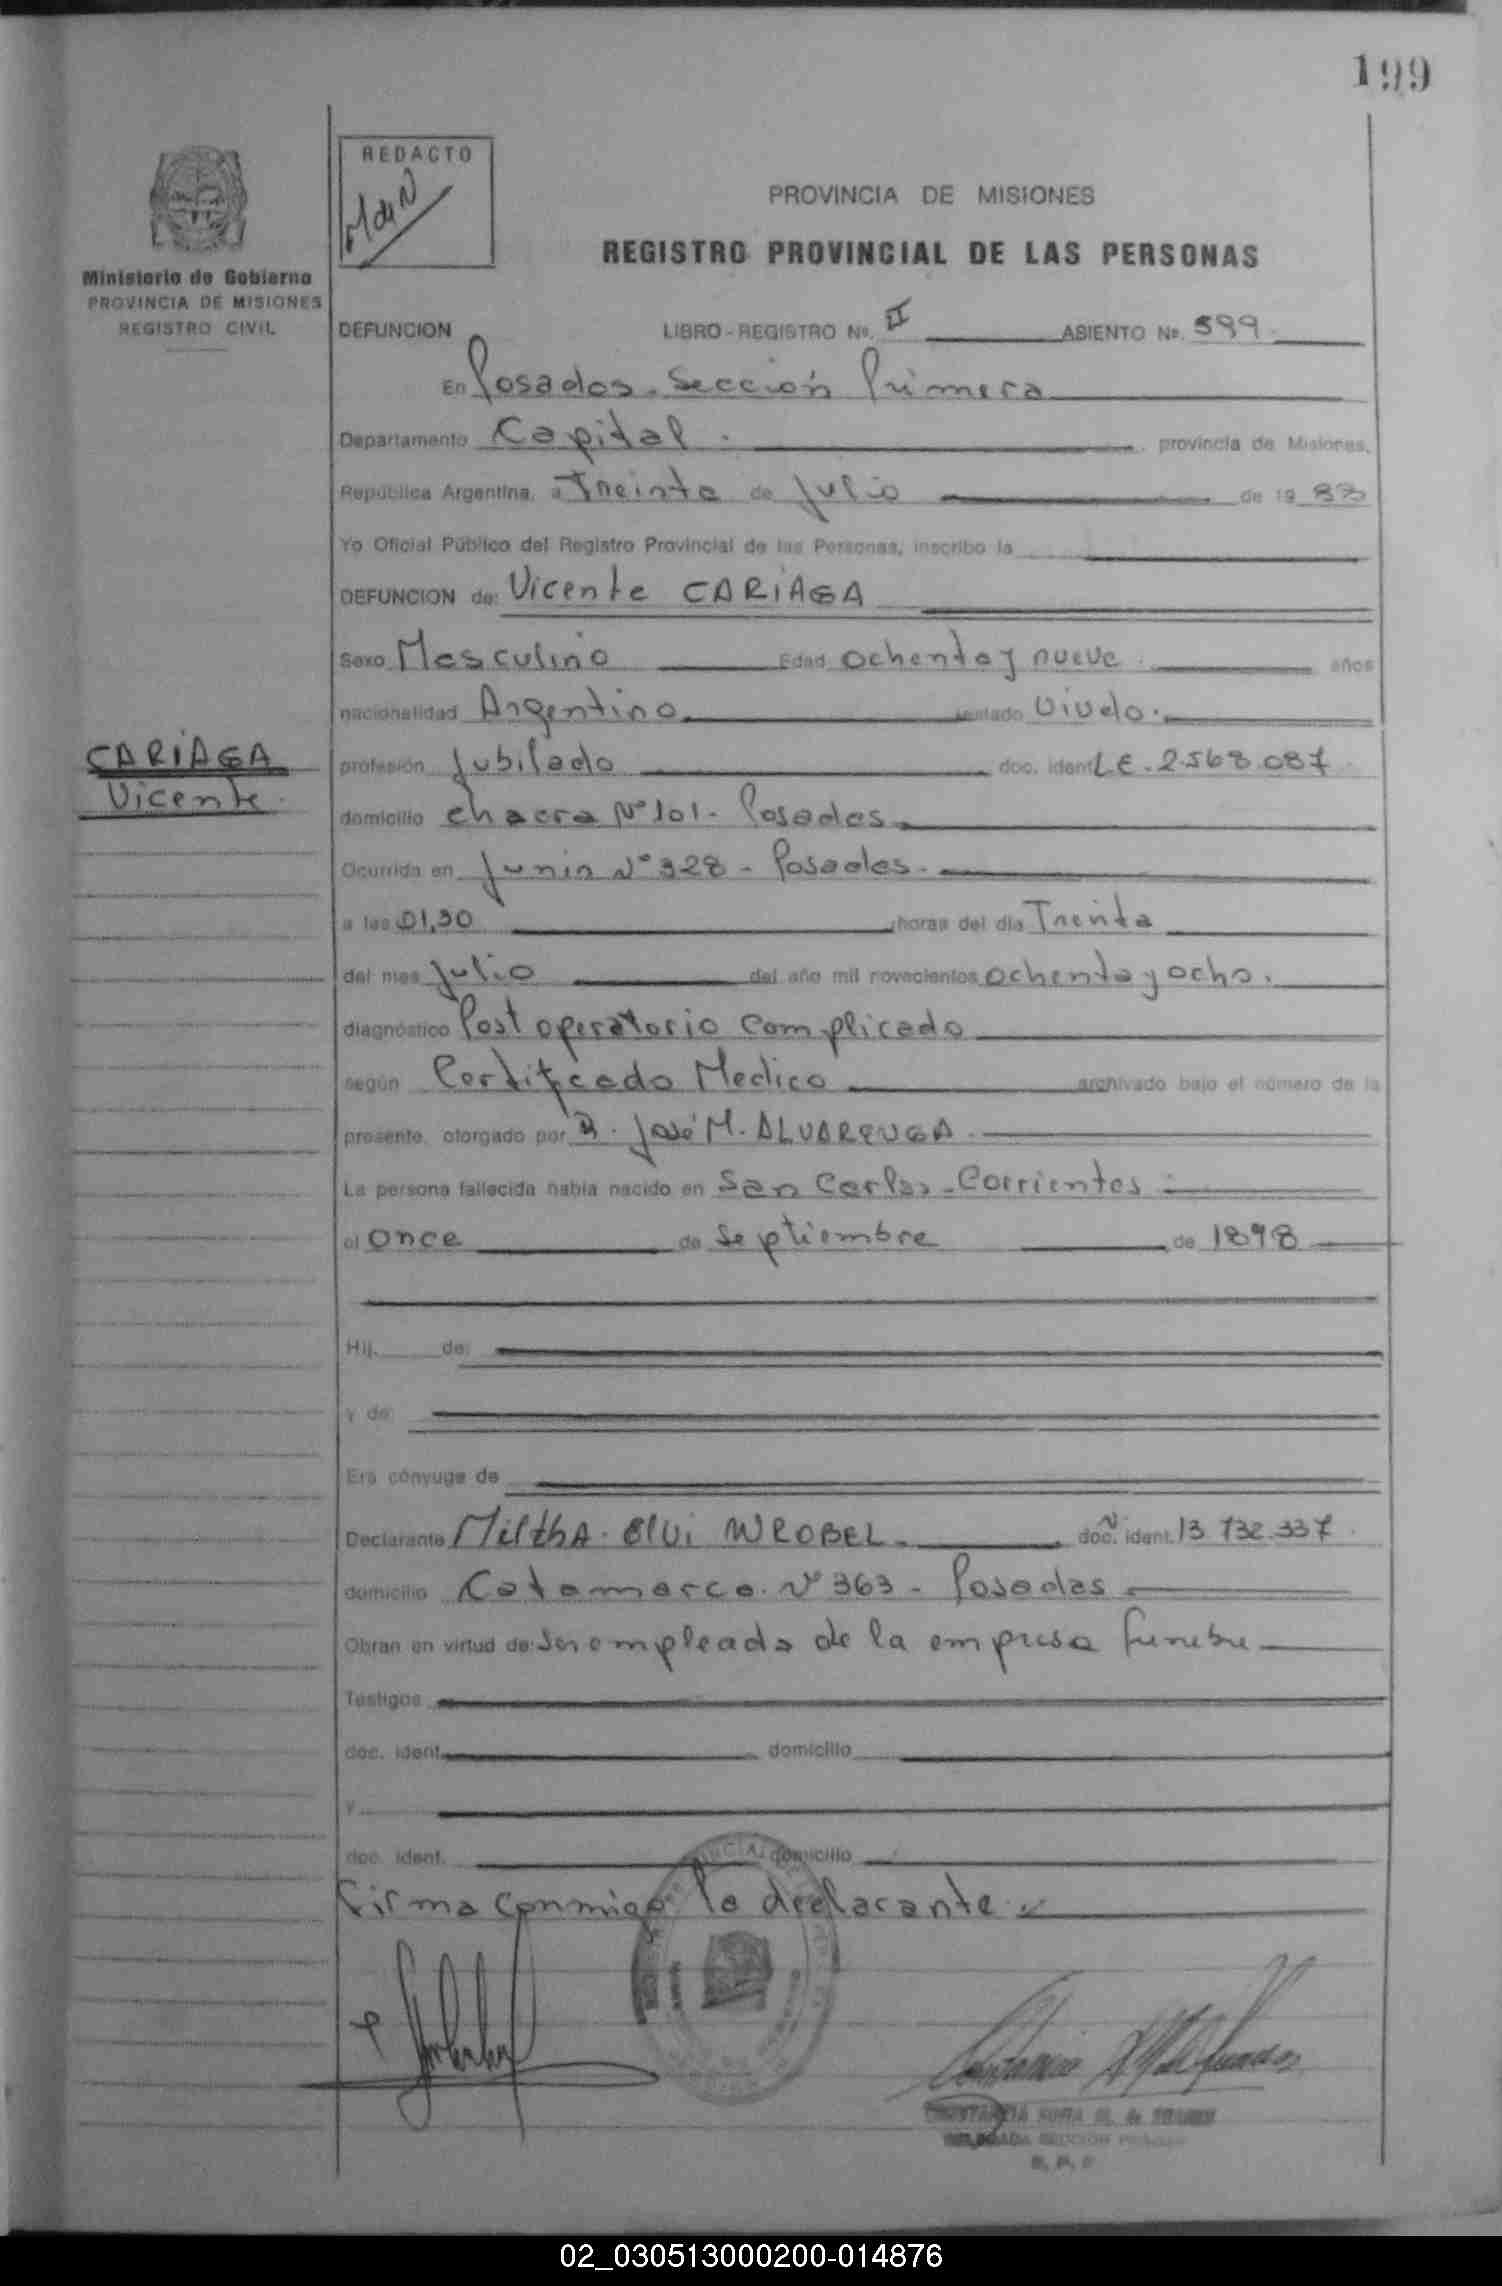 199
REDACTO
PROVINCIA DE MISIONES
REGISTRO PROVINCIAL DE LAS PERSONAS
Ministerio de Gobierno
PROVINCIA DE MISIONES
REGISTRO CIVIL
DEFUNCION LIBRO-REGISTRO No. II ASIENTO No. 599
En Posadas. Sección Primera
Departamento Capital. provincia de Misiones,
República Argentina, a Treinta de Julio de 19 88
Yo Oficial Público del Registro Provincial de las Personas, inscribo la
DEFUNCION de: Vicente CARIAGA
Sexo Masculino Edad ochenta y nueve. años
nacionalidad Argentino estado Viudo.
CARIAGA
Vicente.
profesión Jubilado doc. ident. L.E. 2.568.087.
domicilio chacra Nº 101 - Posadas
Ocurrida en Junin Nº 328 - Posadas.
a las 01,30 horas del día Treinta
del mes Julio del año mil novecientos ochenta y ocho.
diagnóstico Post operatorio complicado
según Certificado Medico archivado bajo el número de la
presente, otorgado por Dr. José M. ALVARENGA.
La persona fallecida había nacido en San Carlos - Corrientes
el once de Septiembre de 1898
Hij. de:
y de:
Era cónyuge de
Declarante Miltha. Elvi WROBEL. doc. ident. 13.732.337.
domicilio Catamarca. Nº 363 - Posadas
Obran en virtud de: ser empleada de la empresa funebre
Testigos
doc. ident. domicilio
y
doc. ident. domicilio
Firma conmigo la declarante.
02_030513000200-014876